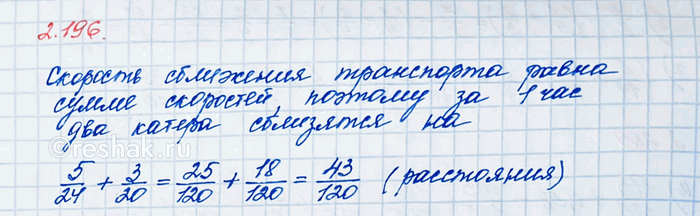 2.196.
Скорость сближения транспорта равна
сумме скоростей, поэтому за 1 час
два катера сблизятся на
reshak.ru
5/24 + 3/20 = 25/120 + 18/120 = 43/120 (расстояния)